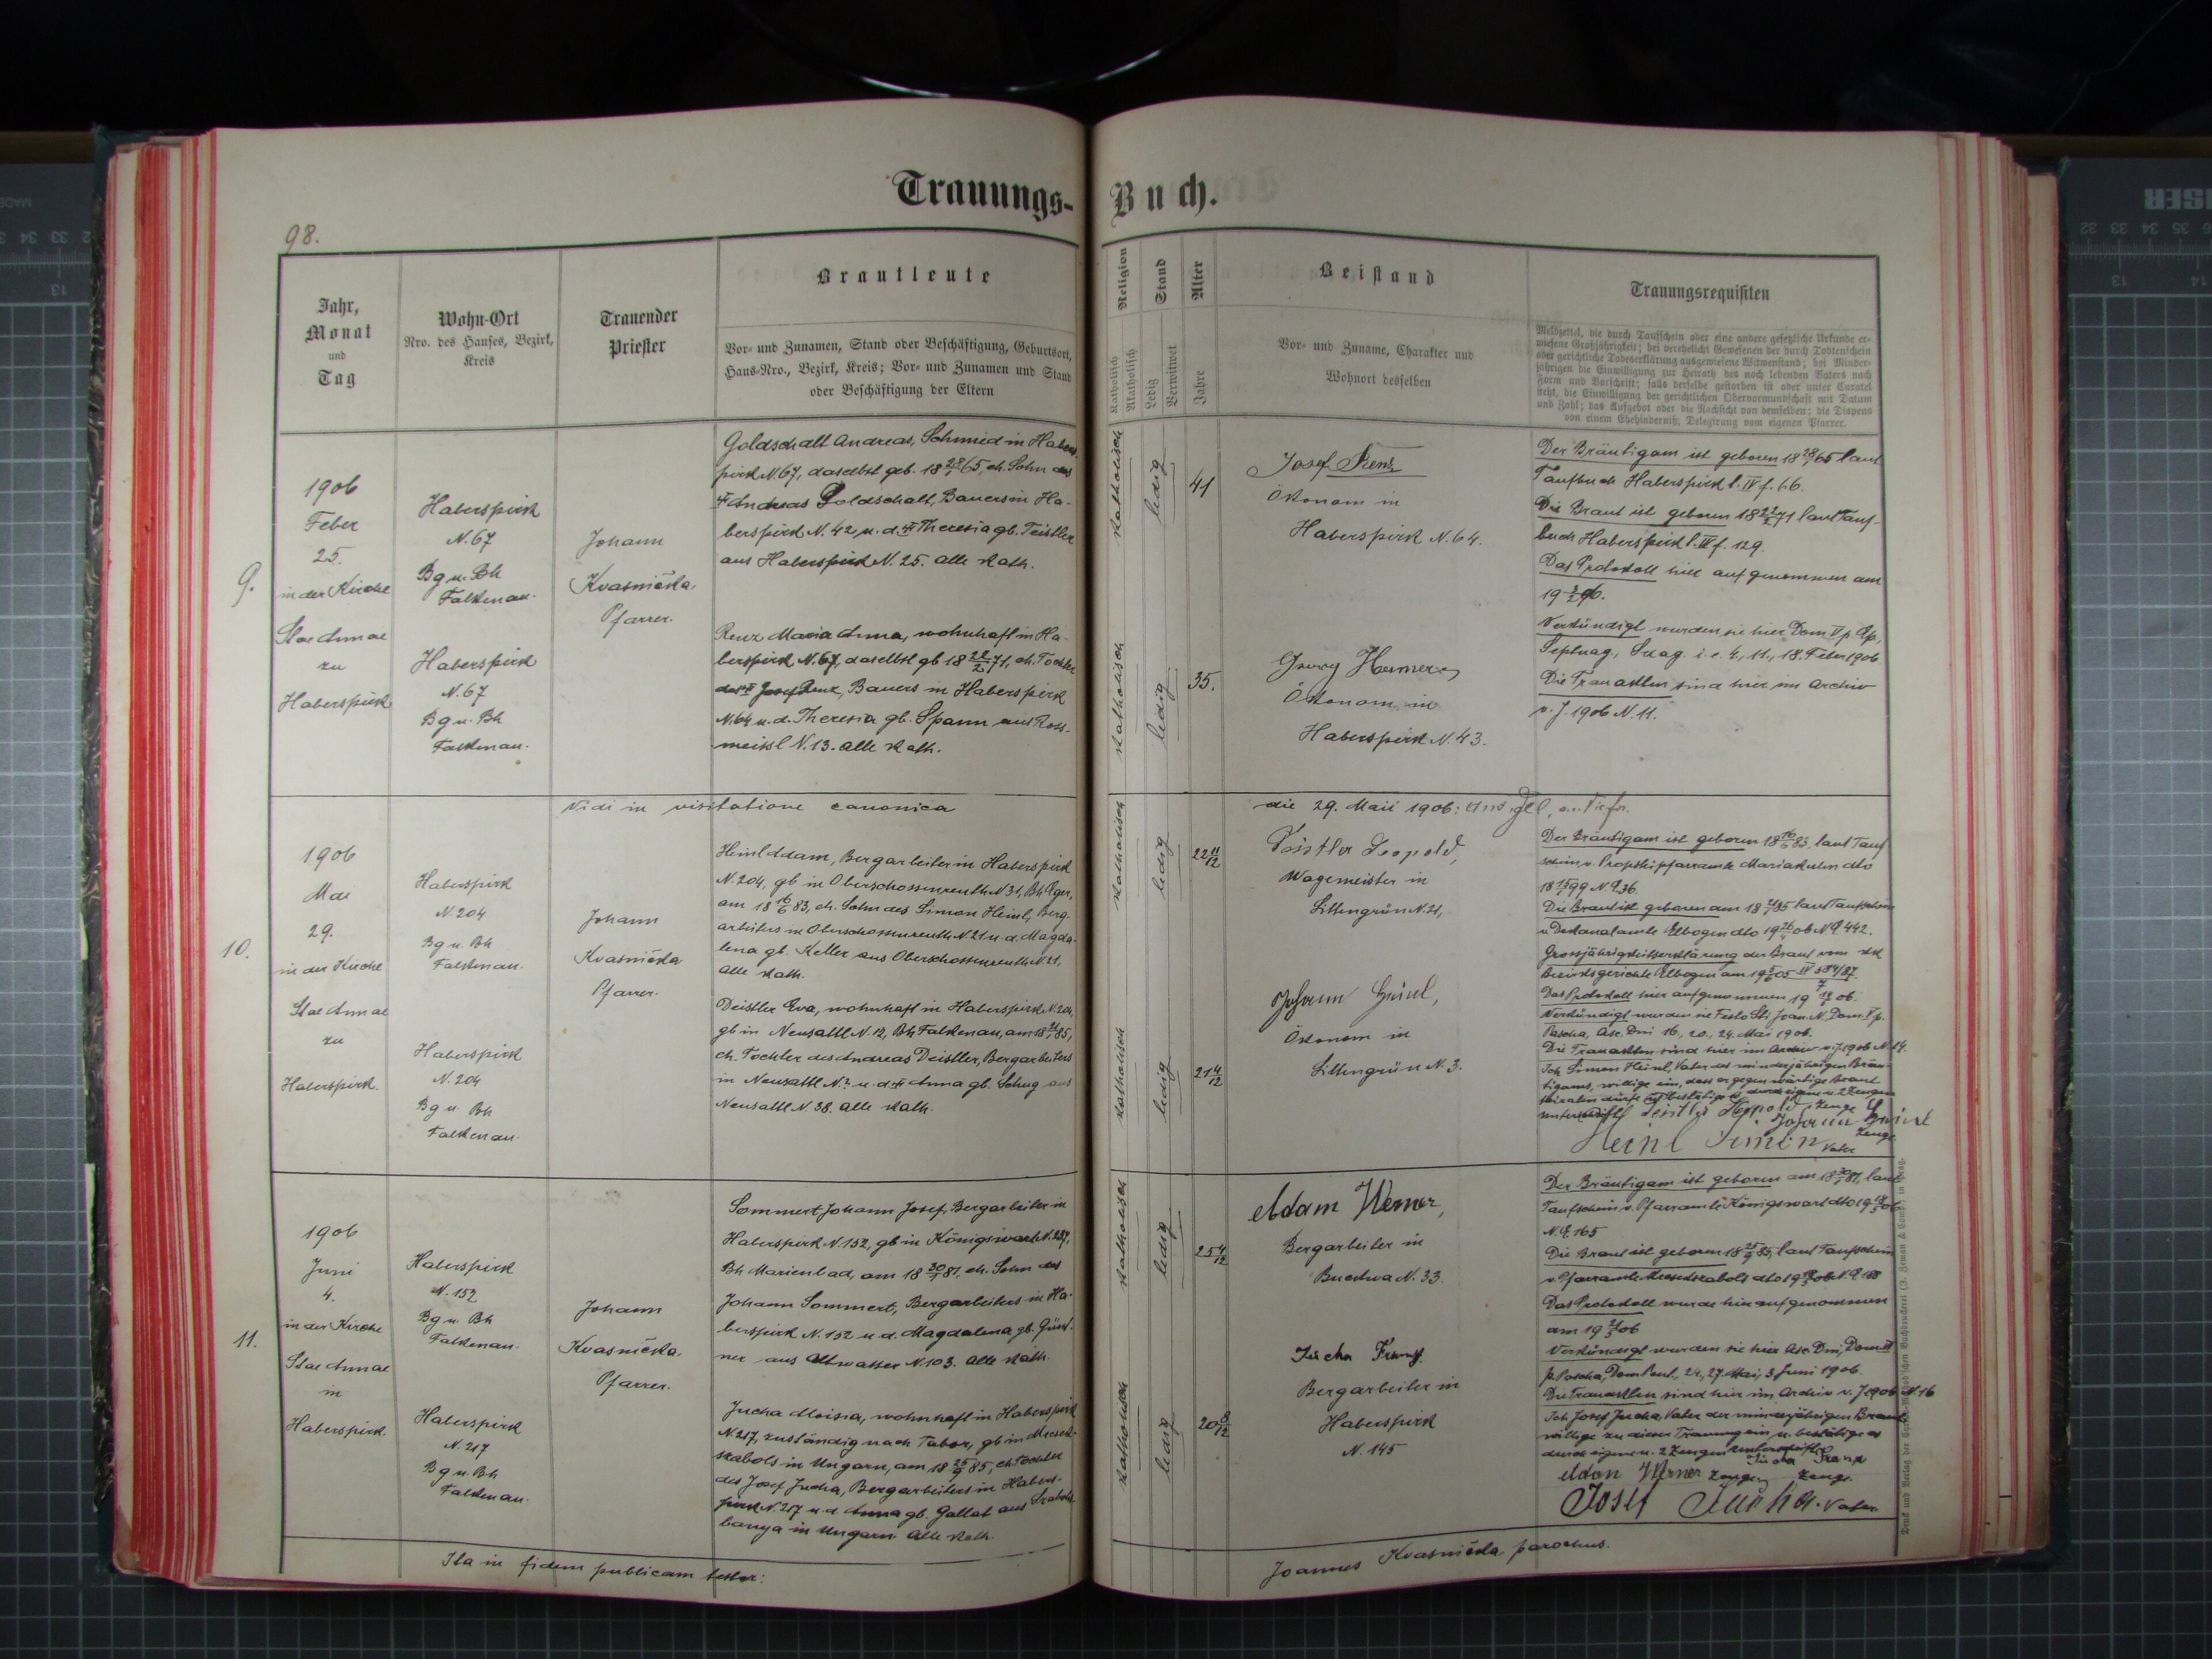 Trauungs-
Buch.
98.
Jahr,
Monat
und
Tag
Wohn-Ort
Nro. des Hauses, Bezirk,
Kreis
Trauender
Priester
Brautleute
Vor- und Zunamen, Stand oder Beschäftigung, Geburtsort,
Haus-Nro., Bezirk, Kreis; Vor- und Zunamen und Stand
oder Beschäftigung der Eltern
Religion
Katholisch
Akatholisch
Stand
Ledig
Verwitwet
Alter
Jahre
Beistand
Vor- und Zuname, Charakter und
Wohnort desselben
Trauungsrequisiten
Meldzettel, die durch Taufschein oder eine andere gesetzliche Urkunde er-
wiesene Großjährigkeit; bei verehelicht Gewesenen der durch Todtenschein
oder gerichtliche Todeserklärung ausgewiesene Witwenstand; bei Minder-
jährigen die Einwilligung zur Heirath des noch lebenden Vaters nach
Form und Vorschrift; falls derselbe gestorben ist oder unter Curatel
steht, die Einwilligung der gerichtlichen Obervormundschaft mit Datum
und Zahl; das Aufgebot oder die Nachsicht von demselben; die Dispens
von einem Ehehinderniß; Delegirung vom eigenen Pfarrer.
9.
1906
Feber
25.
in der Kirche
Stae Annae
zu
Haberspirk
Haberspirk
N. 67
Bg u. Bh
Falkenau.
Haberspirk
N. 67
Bg u. Bh
Falkenau.
Johann
Kvasnička,
Pfarrer.
Goldschalt Andreas, Schmied in Habers-
pirk N. 67, daselbst geb. 18 28/1 65, eh. Sohn des
Andreas Goldschalt, Bauers in Ha-
berspirk N. 42 u. d. Theresia gb. Teistler
aus Haberspirk N. 25. Alle kath.
Renz Maria Anna, wohnhaft in Ha-
berspirk N. 67, daselbst gb 18 22/2 71, eh. Tochter
des Josef Renz, Bauers in Haberspirk
N. 64 u. d. Theresia gb. Spann aus Ross-
meissl N. 13. Alle kath.
katholisch
ledig
41
katholisch
ledig
35.
Josef Renz
Ökonom in
Haberspirk N. 64.
Georg Hermer
Ökonom in
Haberspirk N. 43.
Der Bräutigam ist geboren 18 28/1 65 laut
Taufbuch Haberspirk l. IV f. 66.
Die Braut ist geboren 18 22/2 71 laut Tauf-
buch Haberspirk l. IV f. 129.
Das Protokoll hier aufgenommen am
19
Verkündigt wurden sie hier Dom. V p. Ep.,
Septuag, Sexag. i. e. 4., 11., 18. Feber 1906
Die Trauakten sind hier im Archiv
v. J. 1906 N. 11.
Vidi in visitatione canonica
die 29. Maii 1906:
10.
1906
Mai
29.
in der Kirche
Stae Annae
zu
Haberspirk.
Haberspirk
N. 204
Bg u. Bh
Falkenau.
Haberspirk
N. 204
Bg u. Bh
Falkenau.
Johann
Kvasnička
Pfarrer.
Heinl Adam, Bergarbeiter in Haberspirk
N. 204, gb in Oberschossenreuth N 31, Bh Eger,
am 18 16/6 83, eh. Sohn des Simon Heinl, Berg-
arbeiters in Oberschossenreuth N 21 u. d. Magda-
lena gb. Keller aus Oberschossenreuth N 21,
Alle kath.
Deistler Eva, wohnhaft in Haberspirk N. 204,
gb in Neusattl N. 12, Bh Falkenau, am 18 85,
eh. Tochter des Andreas Deistler, Bergarbeiters
in Neusattl N. ? u. d. Anna gb. Schug aus
Neusattl N. 38. Alle kath.
katholisch
ledig
22 11/12
katholisch
ledig
21 4/12
Deistler Leopold,
Wagemeister in
Littengrün N. 21,
Johann Heinl,
Ökonom in
Littengrün N. 3.
Der Bräutigam ist geboren 18 16/6 83, laut Tauf
schein v. Propsteipfarramte Mariakulm dto
18 99 N. E. 36.
Die Braut ist geboren am 18 85 laut Taufschein
v. Dekanalamte Elbogen dto 19 06 N E 442.
Grossjährigkeitserklärung der Braut vom kk
Bezirksgerichte Elbogen am 19 05 IV 584/87.
Das Protokoll hier aufgenommen 19 06.
Verkündigt wurden sie Festo Sti Joan. N., Dom. V p.
Pascha, Asc. Dni 16., 20., 24. Mai 1906.
Die Trauakten sind hier im Archiv v. J. 1906 N. 14.
Ich Simon Heinl, Vater des minderjährigen Bräu-
tigams, willige ein, dass er gegenwärtige Braut
heiraten dürfe und bestätige es durch eigene u. 2 Zeugen
unterschrift Deistler Leopold Zeuge
Zeuge
Heinl Simon Vater
11.
1906
Juni
4.
in der Kirche
Stae Annae
in
Haberspirk
Haberspirk
N. 152
Bg u. Bh
Falkenau.
Haberspirk
N. 217
Bg u. Bh
Falkenau.
Johann
Kvasnička,
Pfarrer.
Sommert Johann Josef, Bergarbeiter in
Haberspirk N. 152, gb in Königswart N. 237,
Bh Marienbad, am 18 30/1 81, eh. Sohn des
Johann Sommert, Bergarbeiters in Ha-
berspirk N. 152 u. d. Magdalena gb. Günt-
ner aus Altwasser N. 103. Alle kath.
Jucha Aloisia, wohnhaft in Haberspirk
N. 217, zuständig nach Tabor, gb in
in Ungarn, am 18 25/9 85, eh. Tochter
des Josef Jucha, Bergarbeiters in Habers-
pirk N. 217 u. d. Anna gb. Gallat aus
banya in Ungarn. Alle kath.
katholisch
ledig
25 4/12
katholisch
ledig
20 8/12
Adam Werner,
Bergarbeiter in
Buckwa N. 33.
Jucha Franz
Bergarbeiter in
Haberspirk
N. 145
Der Bräutigam ist geboren am 18 30/1 81, laut
Taufschein v. Pfarramte Königswart dto 19 06
N. E. 165
Die Braut ist geboren 18 25/9 85, laut Taufschein
v. Pfarramte
Das Protokoll wurde hier aufgenommen
am 19 06
Verkündigt wurden sie hier Asc. Dni, Dom. VI
p. Pascha, Dom Pent., 24., 27. Mai, 3. Juni 1906.
Die Trauakten sind hier im Archiv v. J. 1906 N. 16
Ich Josef Jucha, Vater der minderjährigen Braut
willige zu dieser Trauung ein u. bestätige es
durch eigene u. 2 Zeugen Unterschrift
Jucha Franz
Adam Werner Zeuge Zeuge.
Josef Jucha. Vater
Ita in fidem publicam testor:
Joannes Kvasnička, parochus.